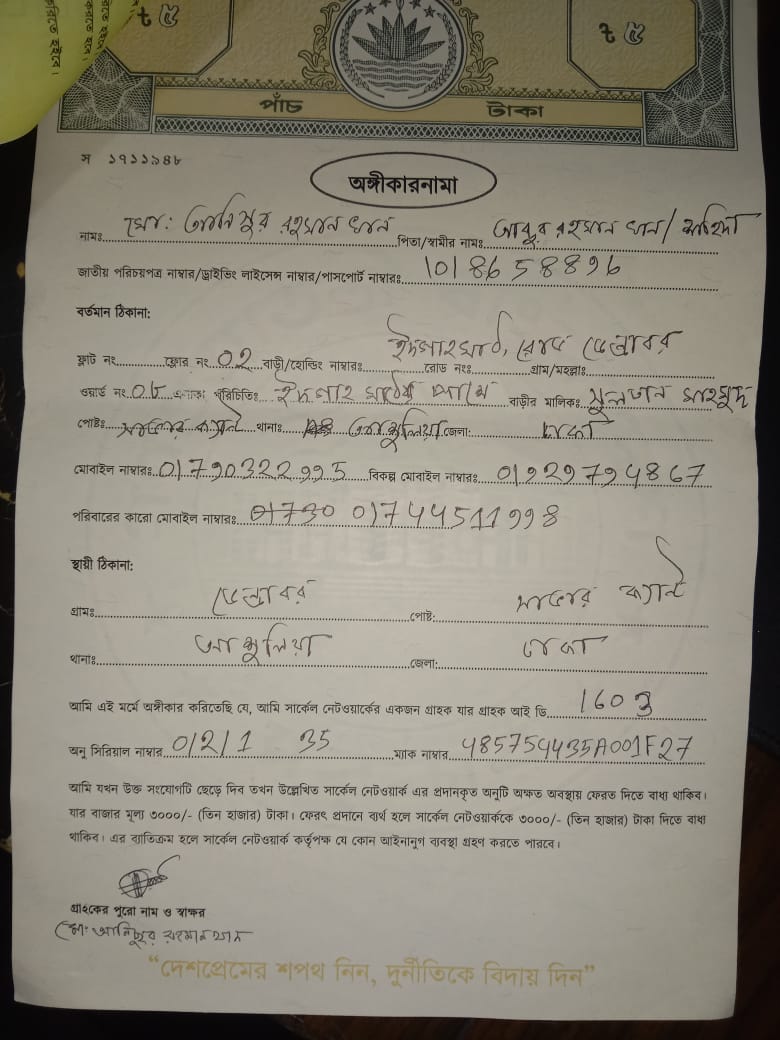 ৳ ৫
৳ ৫
করিতে হইবে।
পাঁচ টাকা
স ১৭১১৯৪৮
অঙ্গীকারনামা
নামঃ মো: আনিসুর রহমান খান পিতা/স্বামীর নামঃ রহমান খান/
জাতীয় পরিচয়পত্র নাম্বার/ড্রাইভিং লাইসেন্স নাম্বার/পাসপোর্ট নাম্বারঃ 1018658896
বর্তমান ঠিকানা:
ফ্লাট নং ফ্লোর নং 02 বাড়ী/হোল্ডিং নাম্বারঃ ঈদগাহমাঠ, রোড নংঃ গ্রাম/মহল্লাঃ ডেন্ডাবর
ওয়ার্ড নং 06 এলাকা পরিচিতিঃ ঈদগাহ মাঠের পাশে বাড়ীর মালিকঃ সুলতান মাহমুদ
পোষ্টঃ সাভার ক্যান্ট থানাঃ আশুলিয়া জেলা: ঢাকা
মোবাইল নাম্বারঃ 01790322995 বিকল্প মোবাইল নাম্বারঃ 01929794867
পরিবারের কারো মোবাইল নাম্বারঃ 01730 01744511998
স্থায়ী ঠিকানা:
গ্রামঃ ডেন্ডাবর পোষ্ট: সাভার ক্যান্ট
থানাঃ আশুলিয়া জেলা: ঢাকা
আমি এই মর্মে অঙ্গীকার করিতেছি যে, আমি সার্কেল নেটওয়ার্কের একজন গ্রাহক যার গ্রাহক আই ডি 1603
অনু সিরিয়াল নাম্বার 0/2/1 35 ম্যাক নাম্বার 485754435A001F27
আমি যখন উক্ত সংযোগটি ছেড়ে দিব তখন উল্লেখিত সার্কেল নেটওয়ার্ক এর প্রদানকৃত অনুটি অক্ষত অবস্থায় ফেরত দিতে বাধ্য থাকিব।
যার বাজার মূল্য ৩০০০/- (তিন হাজার) টাকা। ফেরৎ প্রদানে ব্যর্থ হলে সার্কেল নেটওয়ার্ককে ৩০০০/- (তিন হাজার) টাকা দিতে বাধ্য
থাকিব। এর ব্যতিক্রম হলে সার্কেল নেটওয়ার্ক কর্তৃপক্ষ যে কোন আইনানুগ ব্যবস্থা গ্রহণ করতে পারবে।
গ্রাহকের পুরো নাম ও স্বাক্ষর
মো: আনিছুর রহমান খান
“দেশপ্রেমের শপথ নিন, দুর্নীতিকে বিদায় দিন”